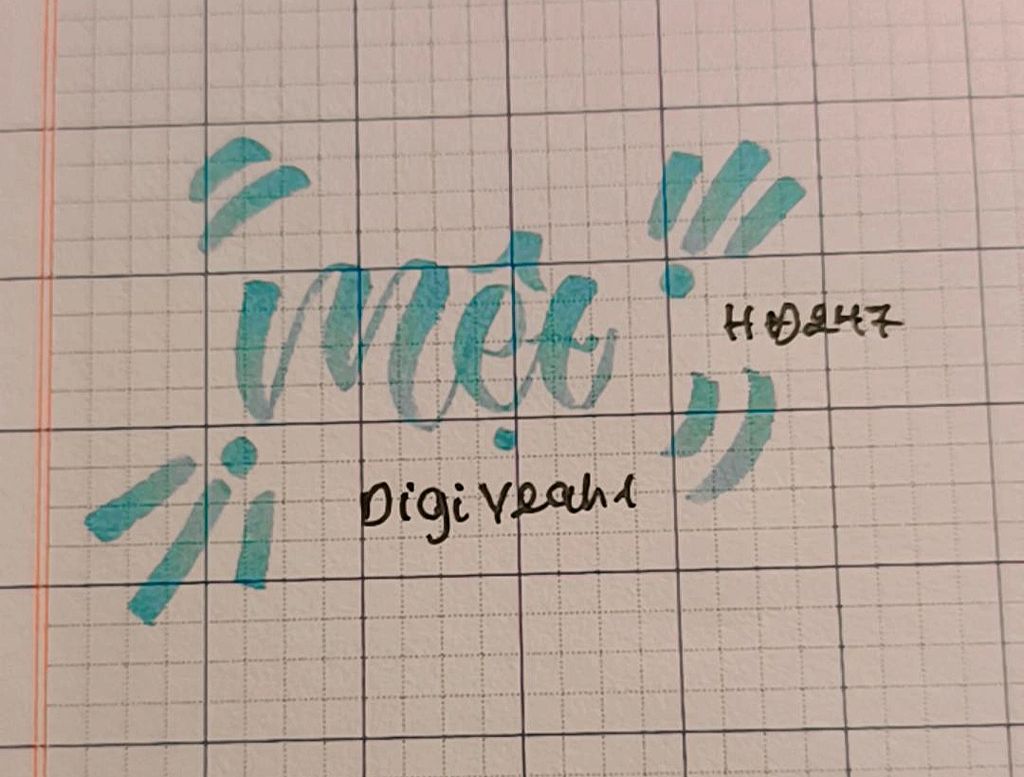 mệt
HĐ247
Digi Yeah1